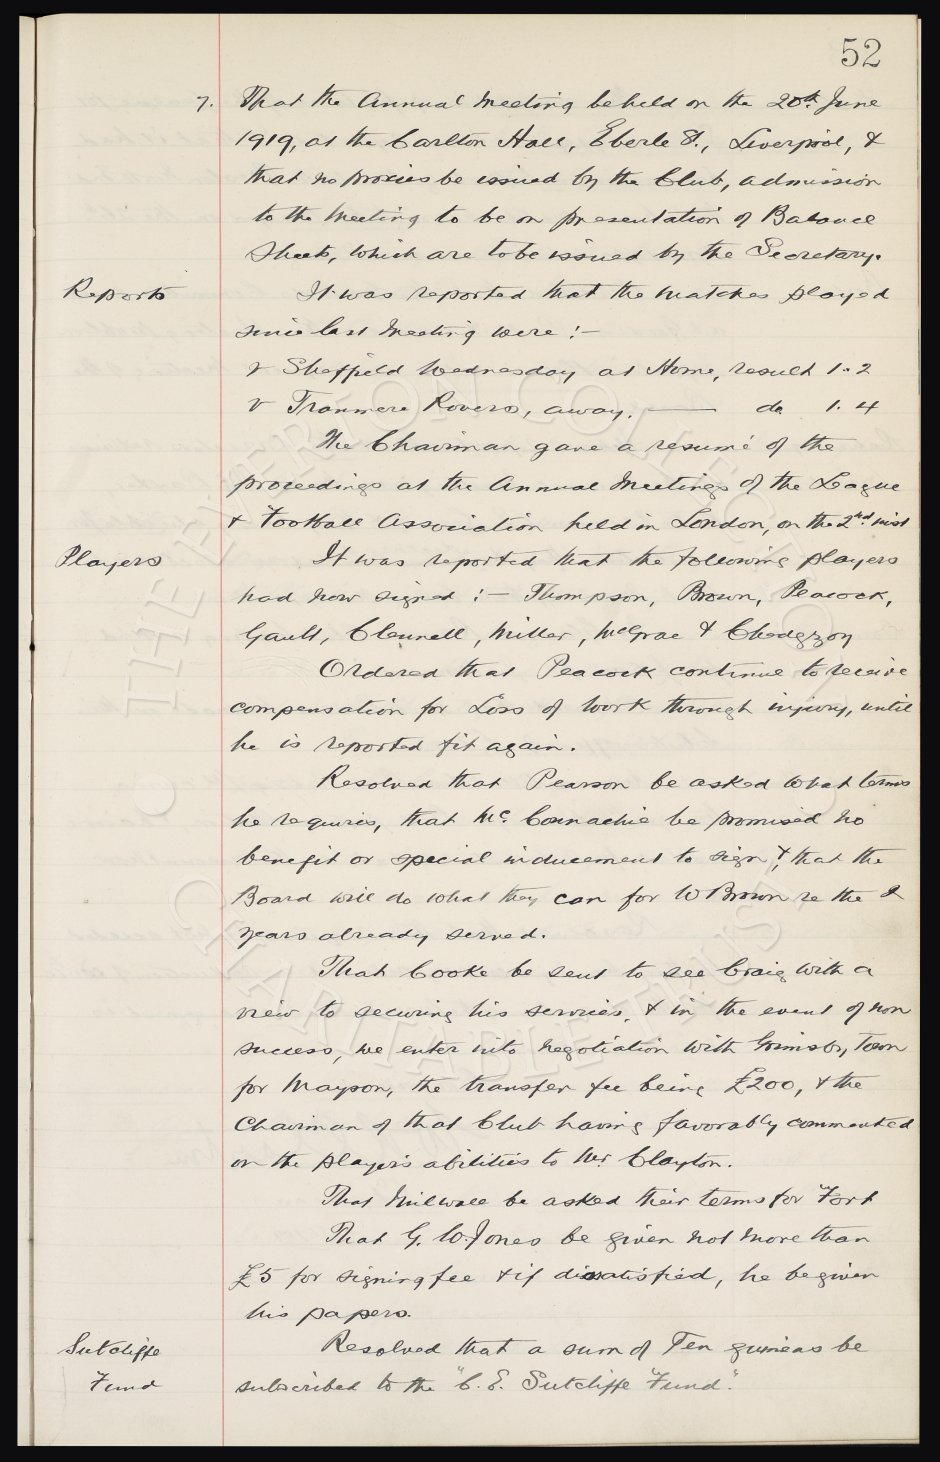 52
7. That the Annual Meeting be held on the 20th June
1919, at the Carlton Hall, Eberle St., Liverpool, &
that no proxies be issued by the Club, admission
to the Meeting to be on presentation of Balance
Sheets, which are to be issued by the Secretary.
Reports It was reported that the matches played
since last Meeting were :-
v Sheffield Wednesday at Home, result 1-2
v Tranmere Rovers, away. —— do 1. 4
The Chairman gave a resumé of the
proceedings at the Annual Meetings of the League
& Football Association held in London, on the 2nd. inst
Players It was reported that the following players
had now signed :- Thompson, Brown, Peacock,
Gault, Clennell, Miller, McGrae & Chedgzoy
Ordered that Peacock continue to receive
compensation for Loss of Work through injury, until
he is reported fit again.
Resolved that Pearson be asked what terms
he requires, that Mc. Connachie be promised no
benefit or special inducement to sign &, that the
Board will do what they can for W Brown re the 2
years already served.
That Cooke be sent to see Craig with a
view to securing his services, & in the event of non
success, we enter into negotiation with Grimsby Town
for Mayson, the transfer fee being £200, & the
Chairman of that Club having favorably commented
on the player's abilities to Mr. Clayton.
That Millwall be asked their terms for Fort
That G. W. Jones be given not more than
£5 for signing fee & if dissatisfied, he be given
his papers.
Sutcliffe Resolved that a sum of Ten guineas be
Fund subscribed to the "C. E. Sutcliffe Fund".